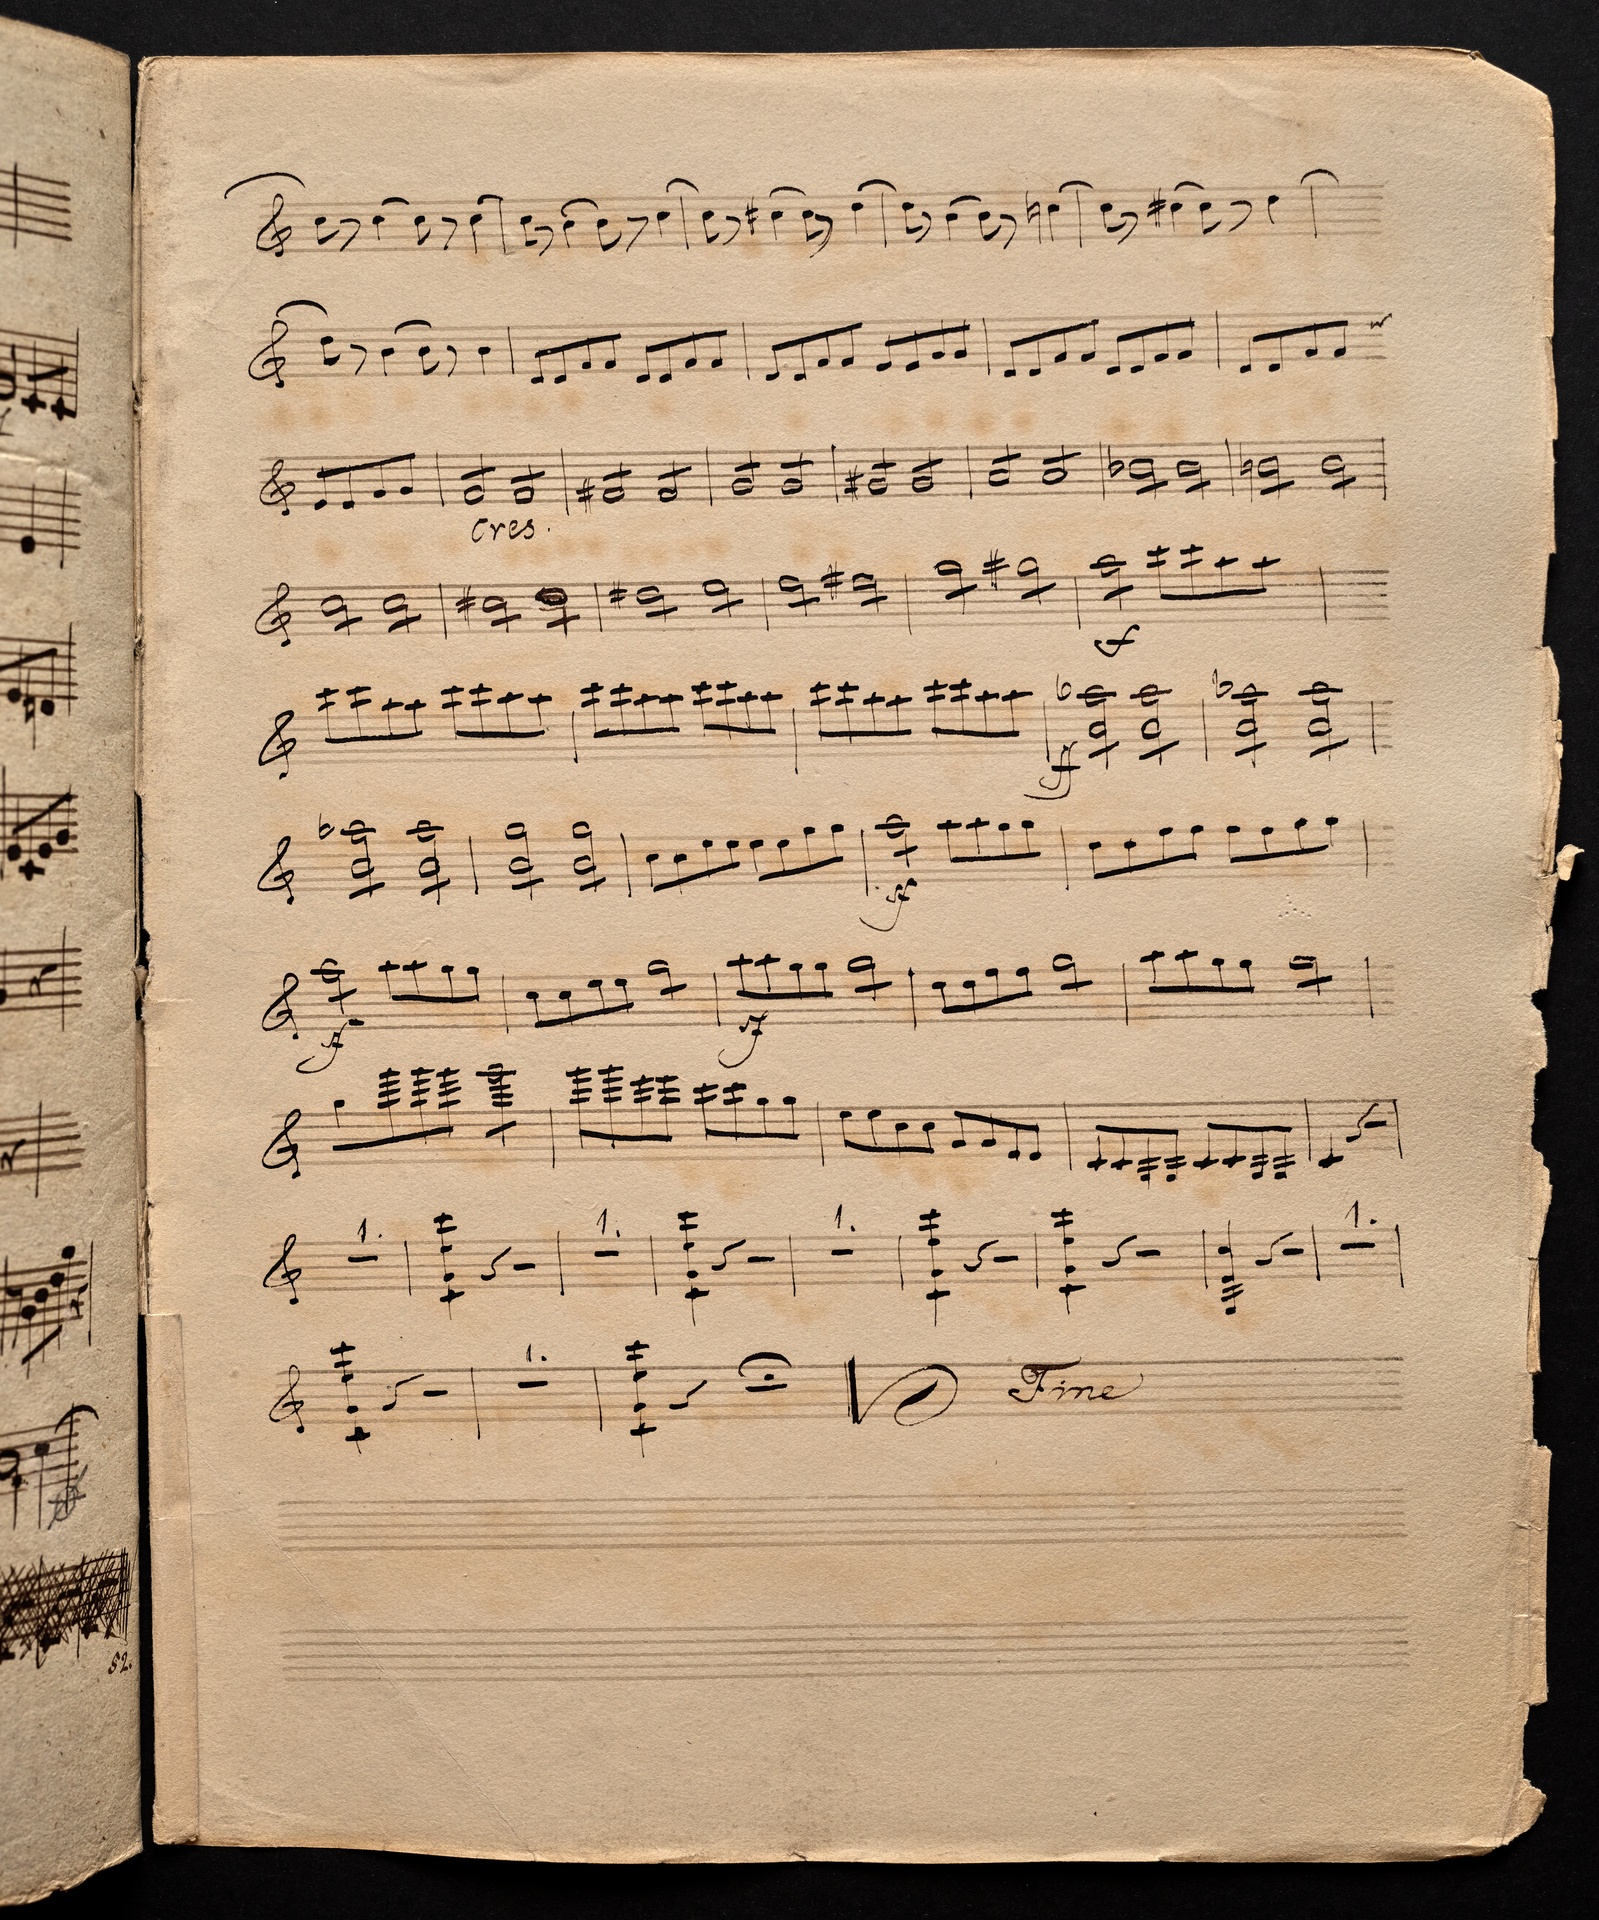 Cres.
f
ff
sf
sf sf
1. 1. 1. 1.
1. Fine
52.